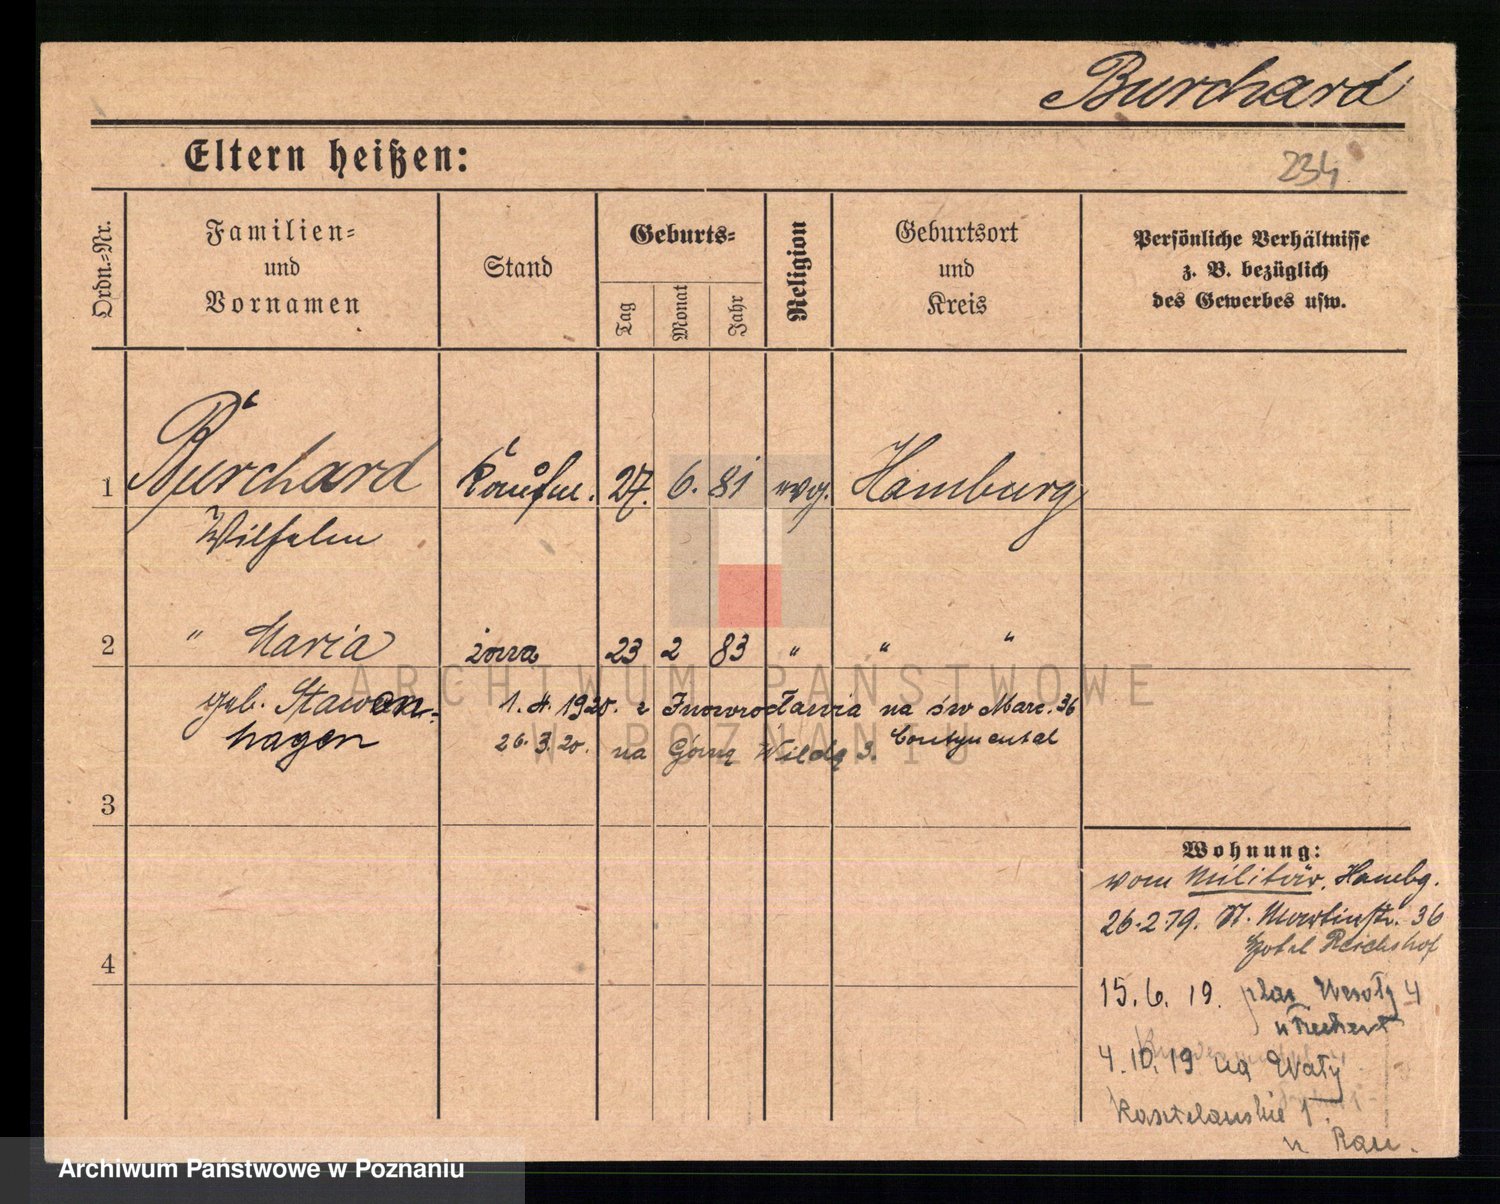 Burchard
Eltern heißen:
234
Ordn.-Nr.
Familien-
und
Vornamen
Stand
Geburts-
Tag
Monat
Jahr
Religion
Geburtsort
und
Kreis
Persönliche Verhältnisse
z. B. bezüglich
des Gewerbes usw.
1 Burchard Kaufm. 27. 6. 81 evg. Hamburg
Wilhelm
2 " Maria żona 23 2 83 " " "
geb. Stawen-
hagen
1. 4. 1920. z Inowrocławia na św Marc. 36
Contynental
26. 3. 20. na Górną Wildę 3.
3
4
Wohnung:
vom Militär, Hambg.
26.2.19. St. Martinstr. 36
Hotel Reichshof
15. 6. 19. plac Wesoły 4
u
4. 10. 19 na Wały
Kasztelańskie 1.
u Rau.
ARCHIWUM PAŃSTWOWE
W POZNANIU
Archiwum Państwowe w Poznaniu